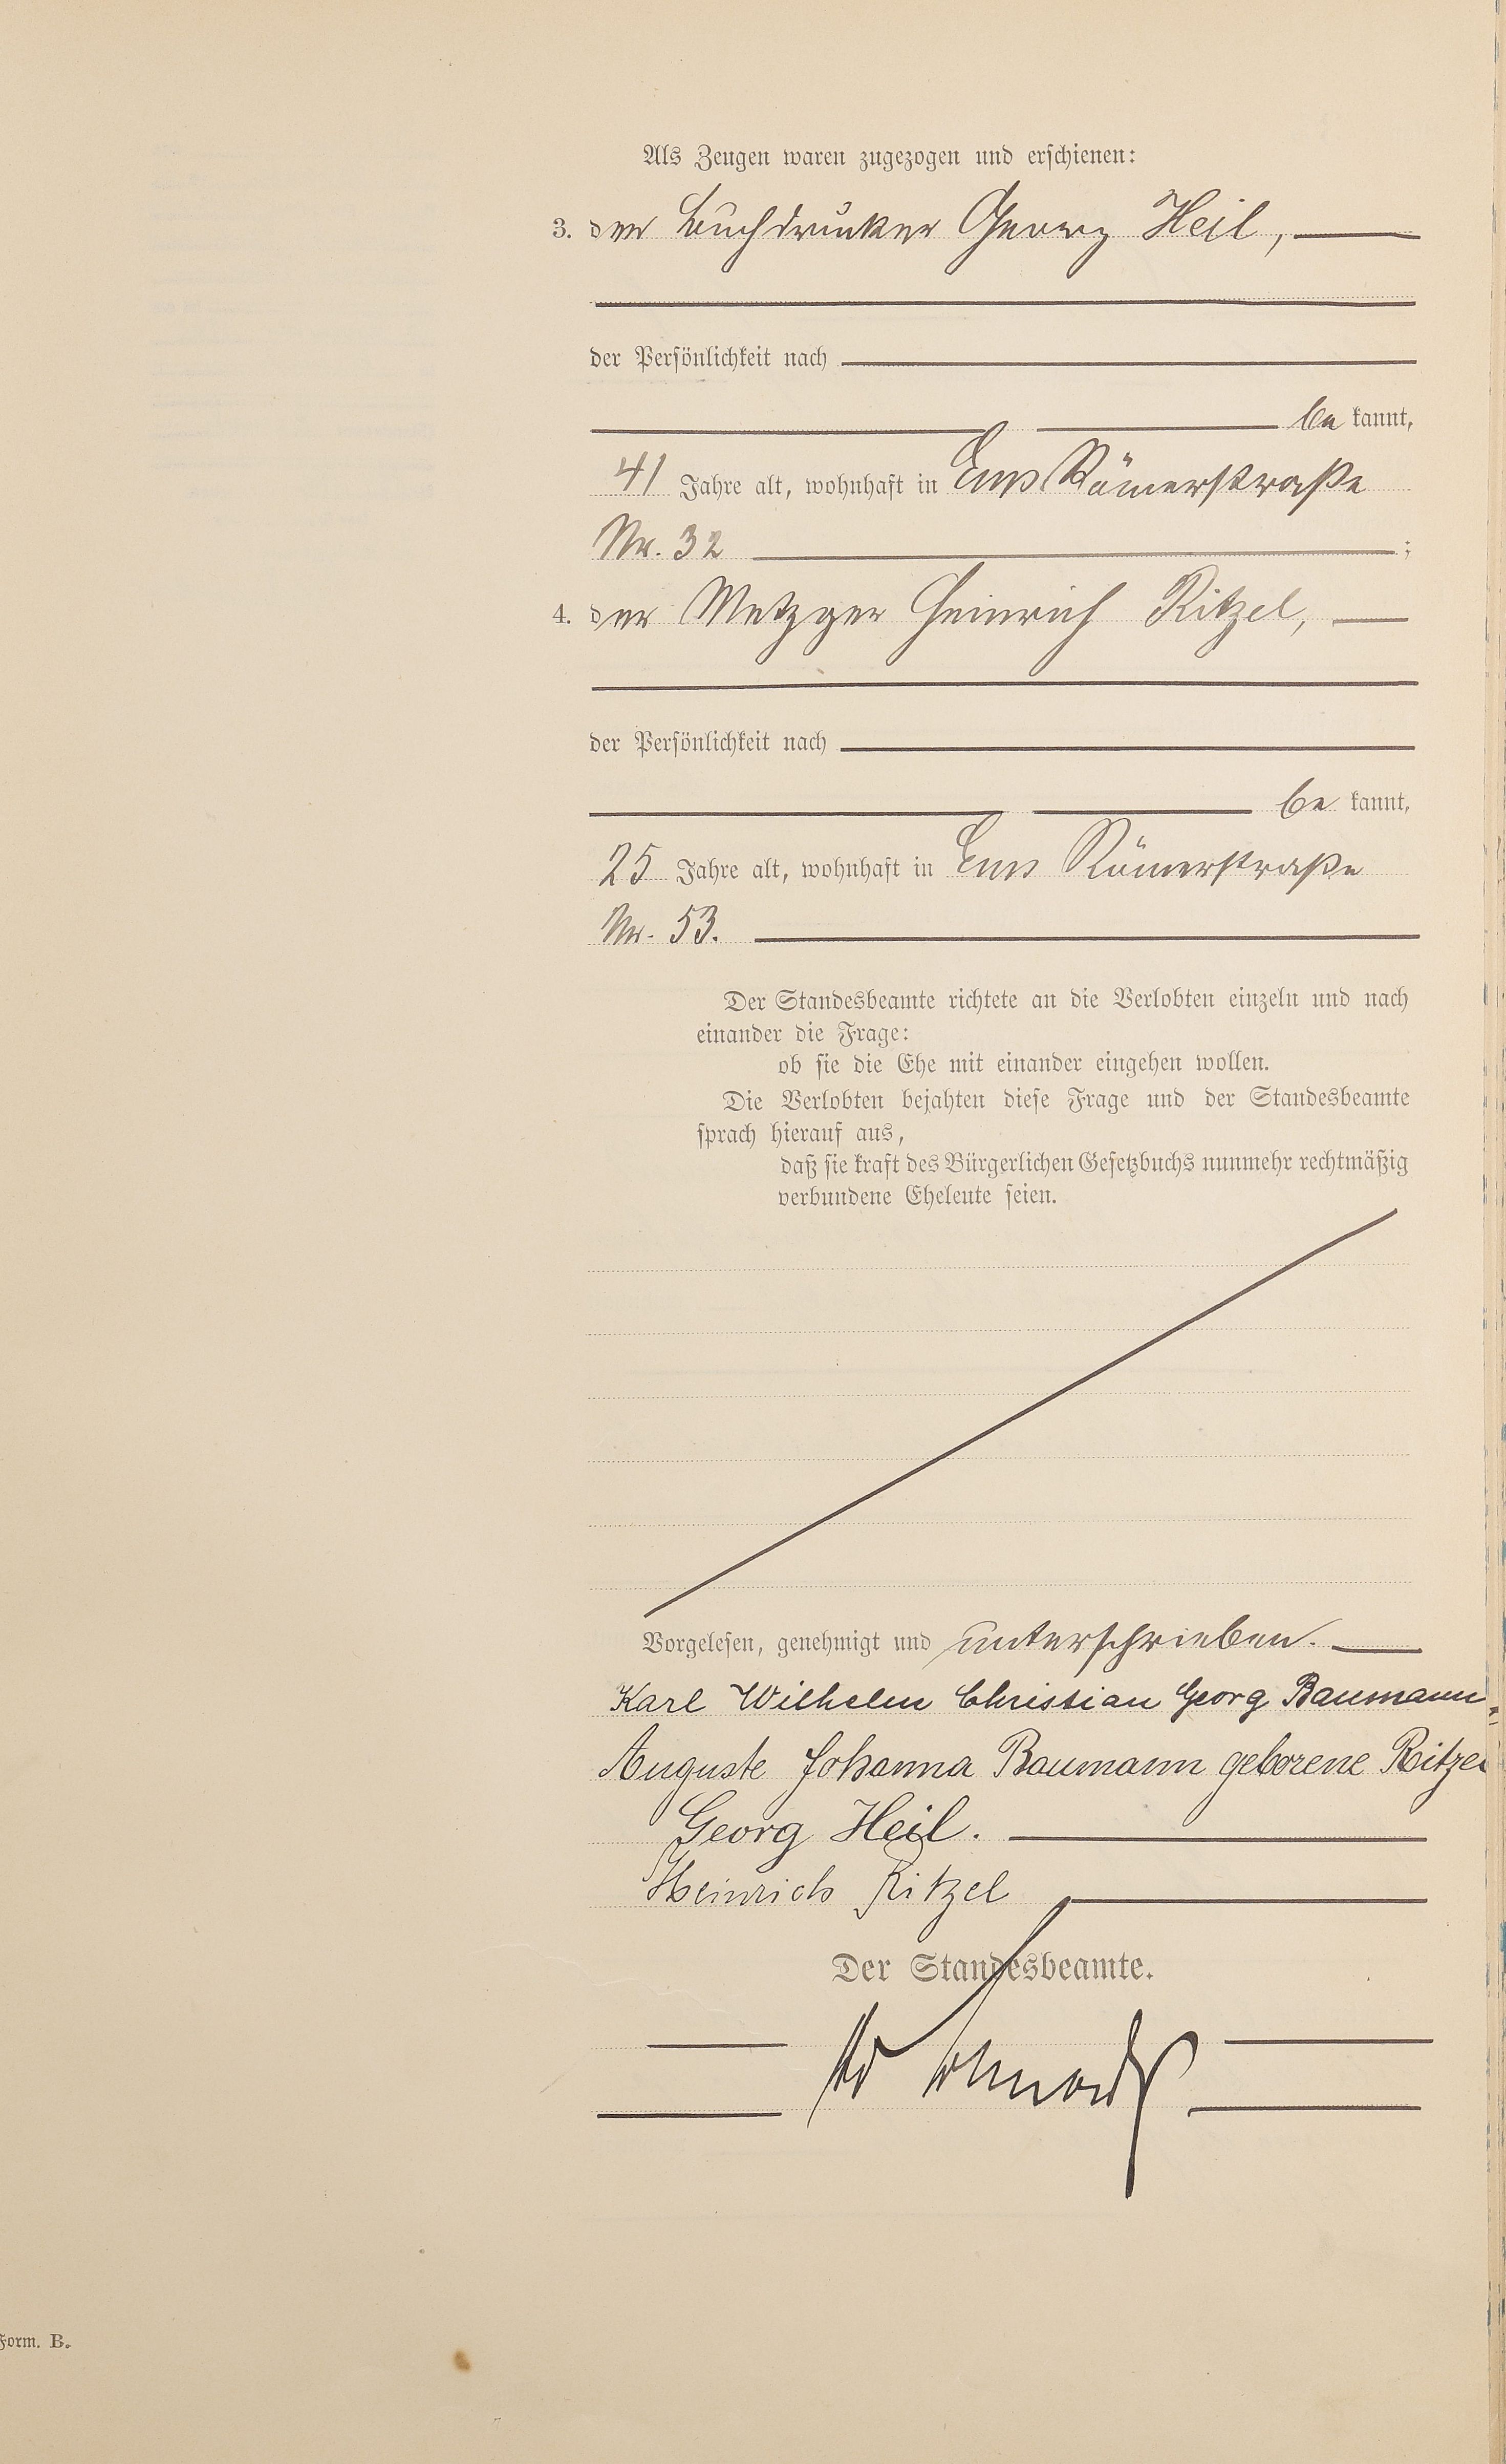 Als Zeugen waren zugezogen und erschienen:
3. der Buchdrucker Georg Heil,
der Persönlichkeit nach
be kannt,
41 Jahre alt, wohnhaft in Ems Römerstraße
Nr. 32 ;
4. der Metzger Heinrich Ritzel,
der Persönlichkeit nach
be kannt,
25 Jahre alt, wohnhaft in Ems Römerstraße
Nr. 53.
Der Standesbeamte richtete an die Verlobten einzeln und nach
einander die Frage:
ob sie die Ehe mit einander eingehen wollen.
Die Verlobten bejahten diese Frage und der Standesbeamte
sprach hierauf aus,
daß sie kraft des Bürgerlichen Gesetzbuchs nunmehr rechtmäßig
verbundene Eheleute seien.
Vorgelesen, genehmigt und unterschrieben.
Karl Wilhelm Christian Georg Baumann
Auguste Johanna Baumann geborene Ritzel
Georg Heil.
Heinrich Ritzel
Der Standesbeamte.
Form. B.